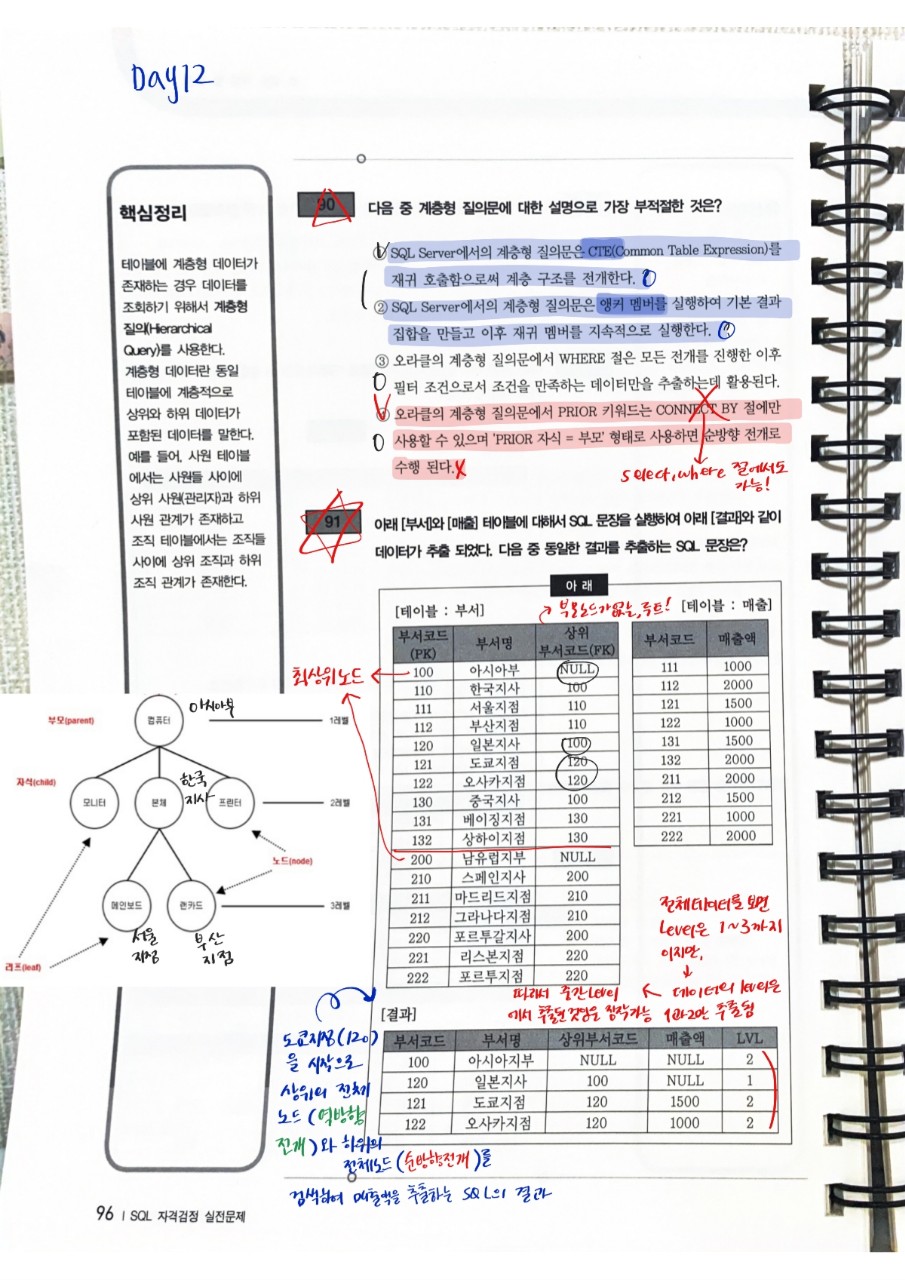 Day12
핵심정리
테이블에 계층형 데이터가
존재하는 경우 데이터를
조회하기 위해서 계층형
질의(Hierarchical
Query)를 사용한다.
계층형 데이터란 동일
테이블에 계층적으로
상위와 하위 데이터가
포함된 데이터를 말한다.
예를 들어, 사원 테이블
에서는 사원들 사이에
상위 사원(관리자)과 하위
사원 관계가 존재하고
조직 테이블에서는 조직들
사이에 상위 조직과 하위
조직 관계가 존재한다.
90 다음 중 계층형 질의문에 대한 설명으로 가장 부적절한 것은?
① SQL Server에서의 계층형 질의문은 CTE(Common Table Expression)를
재귀 호출함으로써 계층 구조를 전개한다.
② SQL Server에서의 계층형 질의문은 앵커 멤버를 실행하여 기본 결과
집합을 만들고 이후 재귀 멤버를 지속적으로 실행한다.
③ 오라클의 계층형 질의문에서 WHERE 절은 모든 전개를 진행한 이후
필터 조건으로서 조건을 만족하는 데이터만을 추출하는데 활용된다.
④ 오라클의 계층형 질의문에서 PRIOR 키워드는 CONNECT BY 절에만
사용할 수 있으며 'PRIOR 자식 = 부모' 형태로 사용하면 순방향 전개로
수행 된다.
select, where 절에서도
가능!
91 아래 [부서]와 [매출] 테이블에 대해서 SQL 문장을 실행하여 아래 [결과]와 같이
데이터가 추출 되었다. 다음 중 동일한 결과를 추출하는 SQL 문장은?
아 래
[테이블 : 부서]
부모노드가 없는, 루트!
부서코드(PK) 부서명 상위부서코드(FK)
100 아시아부 NULL
110 한국지사 100
111 서울지점 110
112 부산지점 110
120 일본지사 100
121 도쿄지점 120
122 오사카지점 120
130 중국지사 100
131 베이징지점 130
132 상하이지점 130
200 남유럽지부 NULL
210 스페인지사 200
211 마드리드지점 210
212 그라나다지점 210
220 포르투갈지사 200
221 리스본지점 220
222 포르투지점 220
최상위노드
[테이블 : 매출]
부서코드 매출액
111 1000
112 2000
121 1500
122 1000
131 1500
132 2000
211 2000
212 1500
221 1000
222 2000
부모(parent)
컴퓨터
아시아부
1레벨
자식(child)
모니터
본체
한국
지사
프린터
2레벨
노드(node)
메인보드
랜카드
3레벨
서울
지점
부산
지점
리프(leaf)
전체데이터를 보면
Level은 1~3까지
이지만,
데이터의 level은
1과2만 추출됨
따라서 중간level
에서 추출된 것임을 짐작가능
[결과]
부서코드 부서명 상위부서코드 매출액 LVL
100 아시아지부 NULL NULL 2
120 일본지사 100 NULL 1
121 도쿄지점 120 1500 2
122 오사카지점 120 1000 2
도쿄지점(120)
을 시작으로
상위의 전체
노드(역방향
전개)와 하위의
전체노드(순방향전개)를
검색하여 매출액을 추출하는 SQL의 결과
96 | SQL 자격검정 실전문제